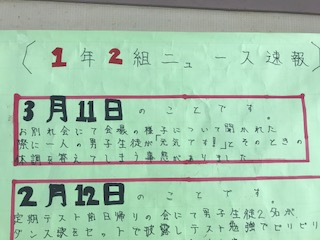 (1年2組ニュース速報)
3月11日のことです。
お別れ会にて会場の様子について聞かれた
際に一人の男子生徒が「元気です!!」とそのときの
体調を答えてしまう事態がありました
2月12日のことです。
定期テスト前日帰りの会にて男子生徒2名が
ダンス?をセットで披露しテスト勉強でピリピリ